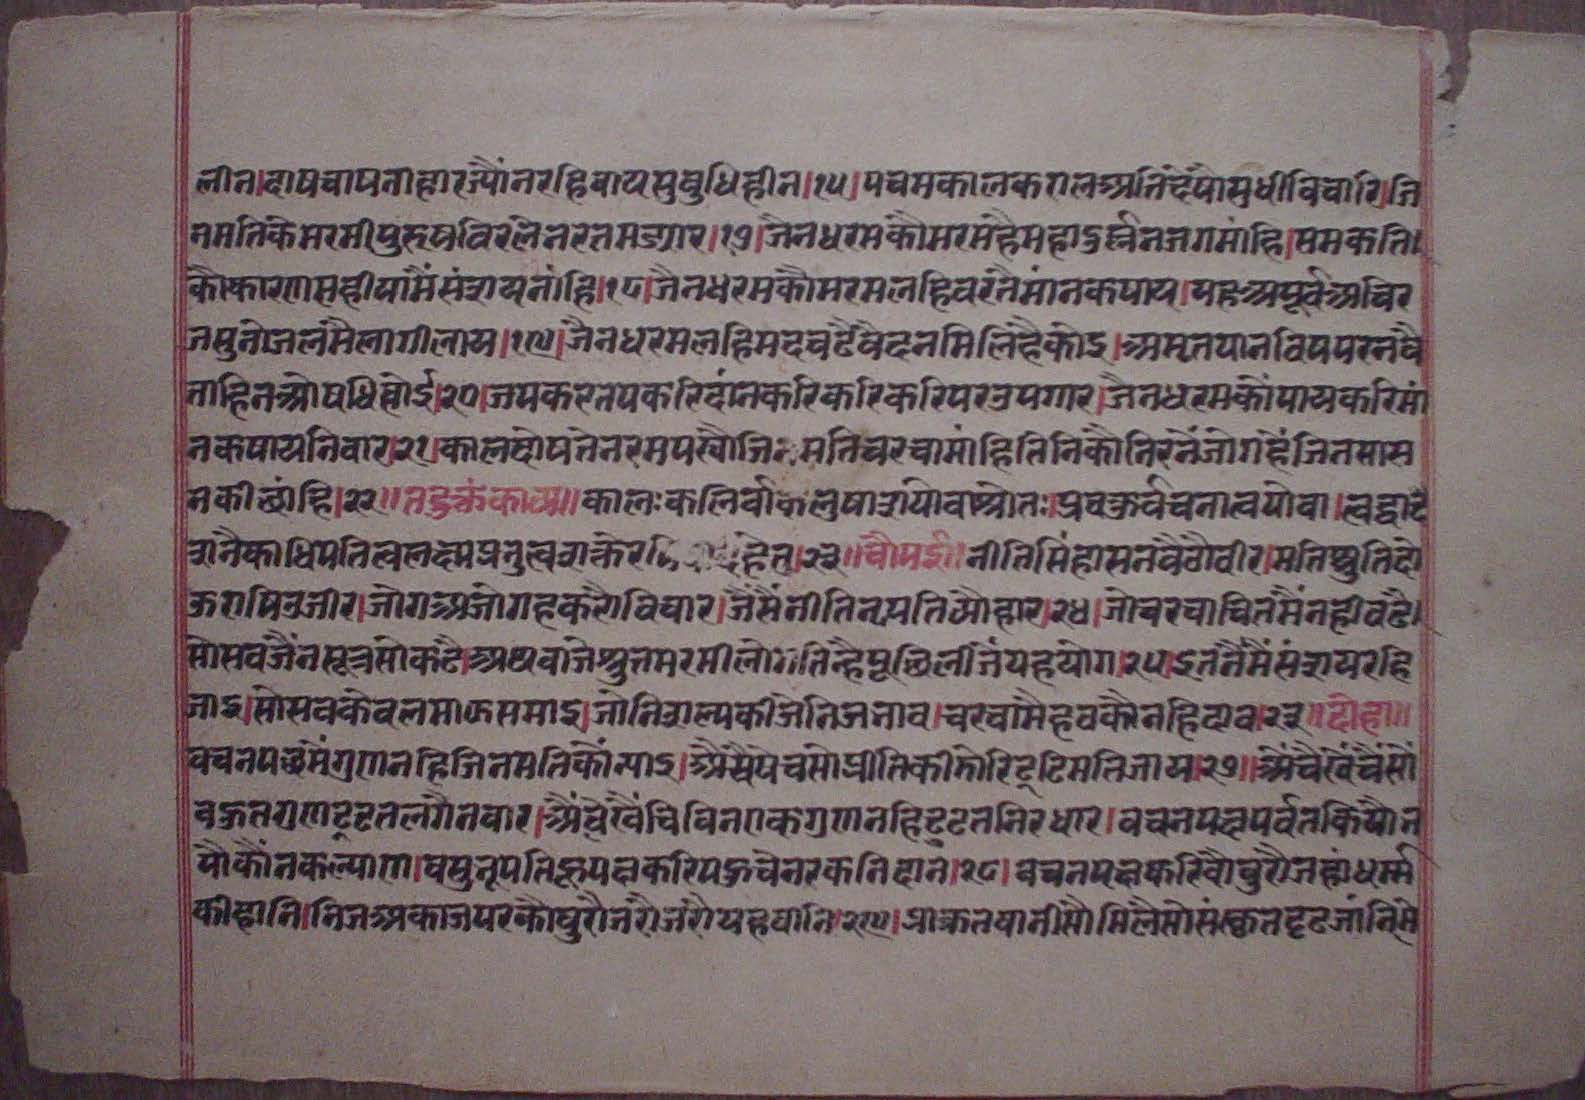 लीन।दाषचाषनीहारज्यौंनरहिवायसुबुधिहीन।१५।पचमकालकरालअतिदेषौसुधीविचारि।जि
नमतिकेमरमीपुरुषविरलेनरतमडग्रार।१७।जैनधरमकौमरमहैमहादुर्ल्लनजगमांहि।समकति।
कौकारणसहीयामैंसंशयनांहि।१८।जैनधरमकौमरमलहिवरतैमांनकषाय।यहअपूर्वअचिर
जसुनोजलमैलागीलाय।१९।जैनधरमलहिमदवटैवैदनमिलिहैकोइ।अमृतपानविषपरनवै
ताहिनओषधिहोई।२०।जपकरतपकरिदांनकरिकरिकरिपरउपगार।जैनधरमकौंपायकरिमां
नकषायनिवार।२१।कालदोषतेनर मतिचरचामांहितिनिकौनिरनैजोगहैंजिनसास
नकीछांहि।२२॥तदुक्तंकाव्य॥कालःकलिर्वाकलुषाशयोवाश्रोतःप्रवक्तुर्वचनात्वयोवा।त्वछा
शनैकाधिपतित्वलक्ष्मप्रभुत्वशक्तेर हेतु।२३॥चौपई॥नीतिसिंहासनवैठौवीर।मतिश्रुतिदो
ऊराषिउजीर।जोगअजोगहकरौविचार।जैसैनीतिनृपतिव्यौहार।२४।जोचरचाचितमैंनहीचढै।
सोसवजैनसूत्रसोकढै।अथवाजेश्रुतमरमीलोगतिन्हैपूछिलीजैयहयोग।२५।इतनैमैंसंशयरहि
जाइ।सोसवकेवलमाऊसमाइ।जोनिशल्यकीजेनिजनाव।चरचामैहवकौनहिदाव।२६॥दोहा॥
वचनपछमैंगुणनहिजिनमतिकौन्याइ।अैंसैपेचसोप्रीतिकीतोरिटूटिमतिजाय।२७॥अैंचैखेंचैंसौं
वऊतगुणटूटतलगैनवार।अैंचेखैंचिविनएकगुणनहिटूटतनिरधार।वचनपक्षपर्वतकियौन
यौकौंनकल्याण।वसुनृपतिहूपक्षकरिपऊचेनरकनिदान।२८।वचनपक्षकरिवौवुरौजहांधर्म्म
कीहानि।निजअकाजपरकौवुरौजरौजरौयहवानि।२९।प्राक्रतवानीसौमिलैसोसंस्कृतदृढजांनिसे